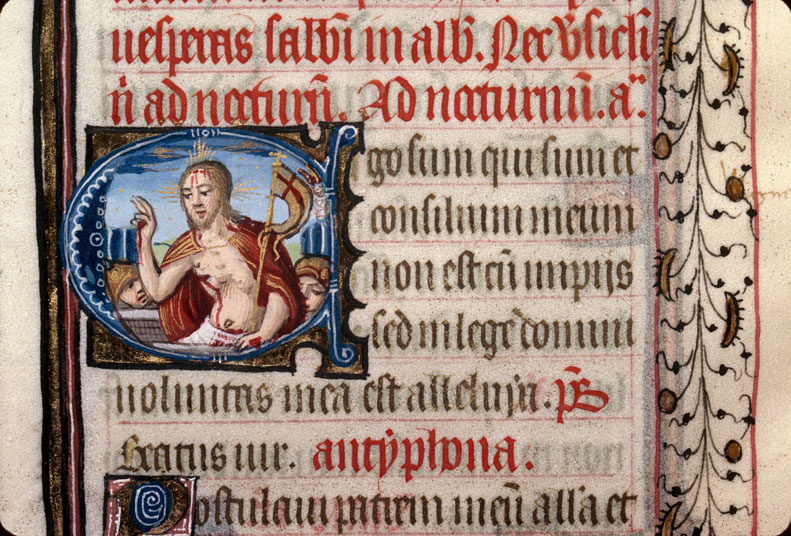 uesperas sabbi in alb. Nec v̉sicli
n̉ ad nocturn̄. Ad nocturnū. a͞.
Ego sum qui sum et
consilium meum
non est cū impijs
sed in lege domini
uoluntas mea est alleluja. ps̄
Beatus uir. antyphona.
Postulaui patrem meū all'a et